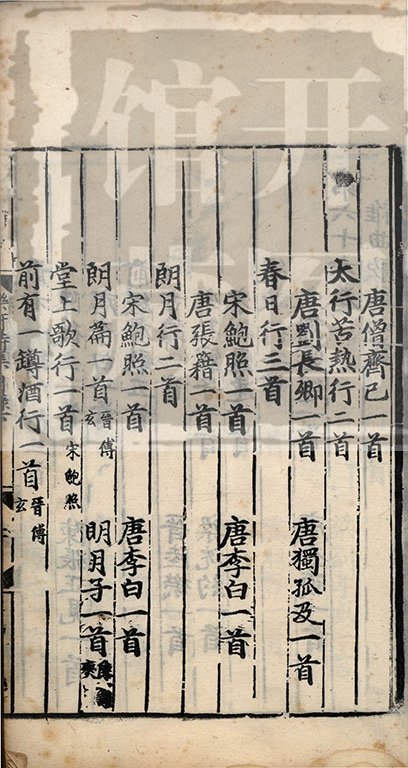 唐僧齊己一首
太行苦熱行二首
唐劉長卿一首 唐獨孤及一首
春日行三首
宋鮑照一首 唐李白一首
唐張籍一首
朗月行二首
宋鮑照一首 唐李白一首
朗月篇一首 晉傅玄 明月子一首
堂上歌行一首 宋鮑照
前有一罇酒行一首 晉傅玄
开
馆